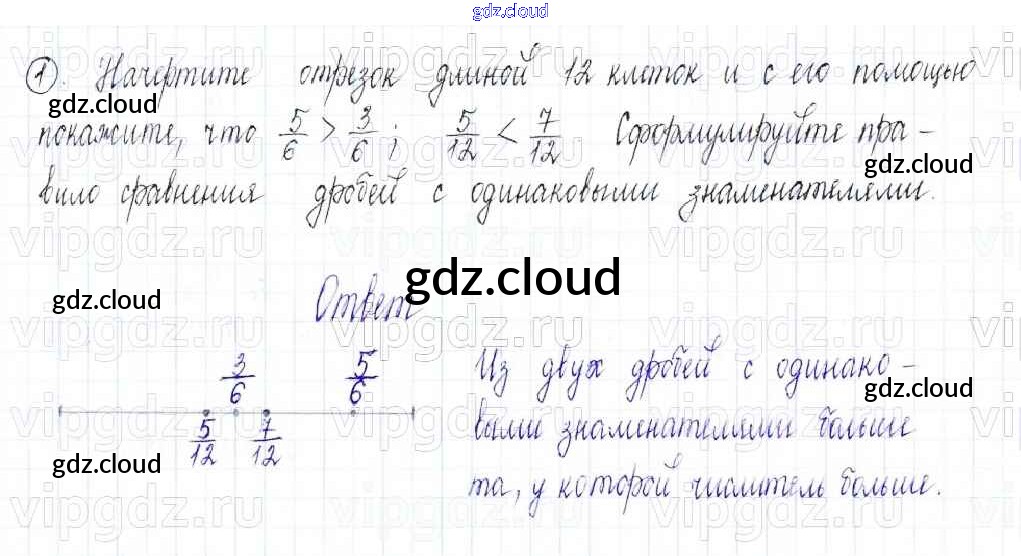 gdz.cloud
1. Начертите отрезок длиной 12 клеток и с его помощью
gdz.cloud
покажите, что 5/6 > 3/6; 5/12 < 7/12 Сформулируйте пра-
вило сравнения дробей с одинаковыми знаменателями.
gdz.cloud
gdz.cloud
gdz.cloud
Ответ
3/6 5/6
5/12 7/12
Из двух дробей с одинако-
gdz.cloud
выми знаменателями больше
та, у которой числитель больше.
gdz.cloud
gdz.cloud
vipgdz.ru vipgdz.ru vipgdz.ru vipgdz.ru